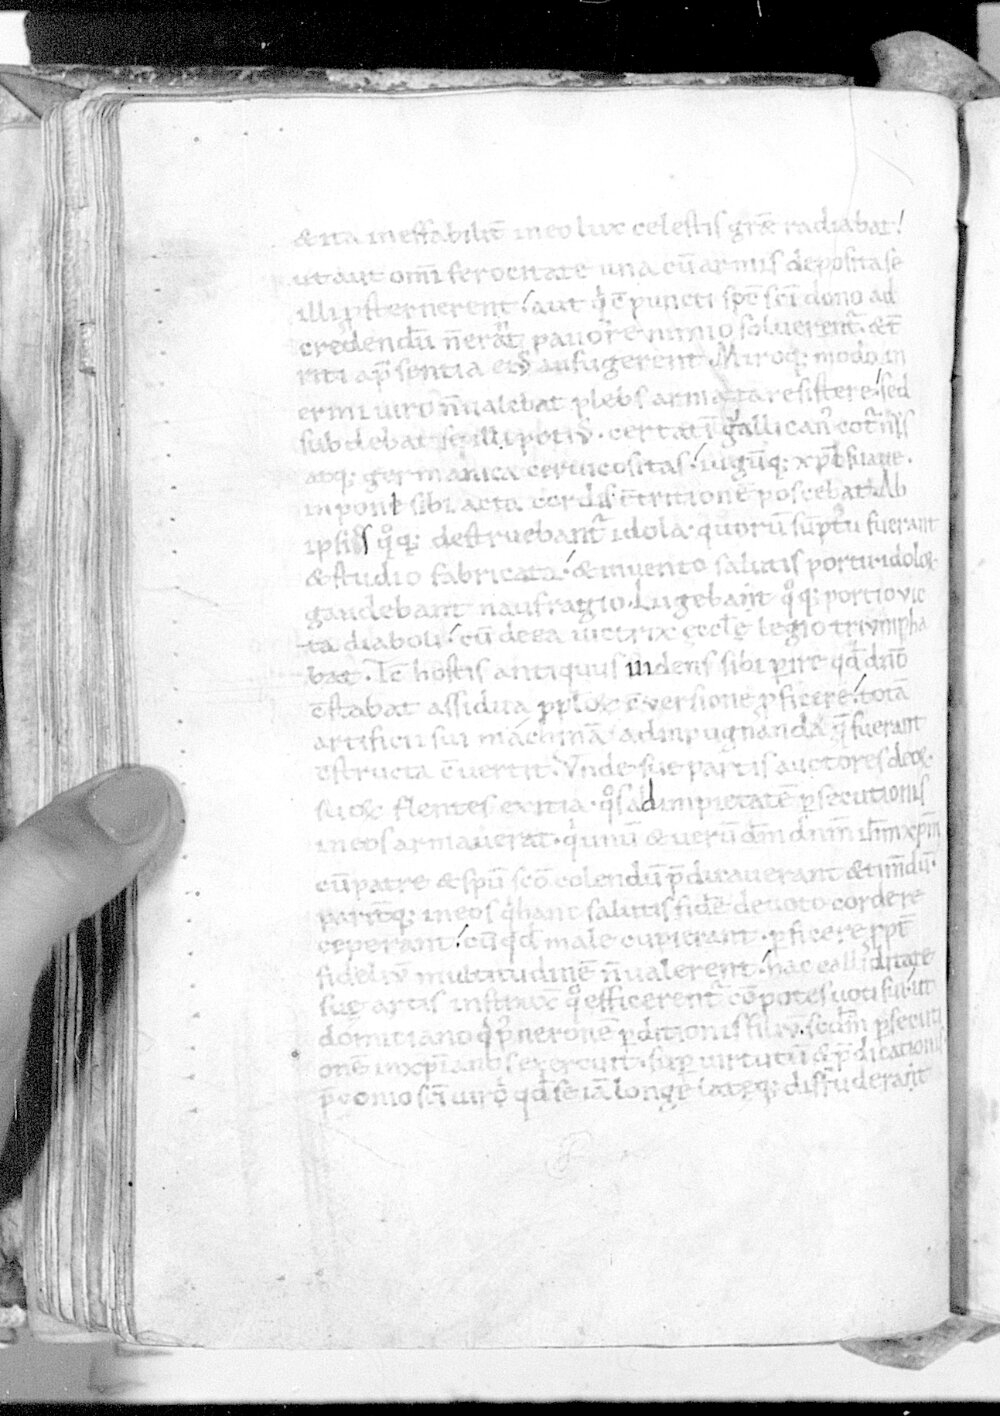 & ita ineffabilit̄ in eo lux celestis grāe radiabat!
ut aut om̄i ferocitate una cū armis deposita se
illi p̄sternerent! aut qui c̄puncti spē sc̄i dono ad
credendū n̄ erant pavore nimio solverent᷑ &
riti a p̄sentia ei᷒ aufugerent. Miroq; modo in
ermi viro n̄ valebat plebs armata resistere! sed
subdebat se illi poti᷒. certatī gallicani
atq; germanica cervicositas! iugūq; xp̄i suave.
inponi sibi acto cordis c̄tritione poscebat. Ab
ipsis qoq; destruebant᷑ idola. quorū sūptu fuerant
& studio fabricata! & invento salutis portu. idoloꝝ
gaudebant naufragio. Lugebant qoq; portio vic
ta diaboli! cū de ea victrix ęccl̄ę legio triumpha
bat. Tc̄ hostis antiquus videns sibi perire qd dn̄o
c̄stabat assidua pploꝝ c̄versione pficere! totā
artificii sui máchinā ad inpugnanda quę fuerant
c̄structa c̄vertit. Vnde suę partis auctores deoꝝ
suoꝝ flentes exitia. qos ad impietatē psecutionis
in eos armaverat. qui unū & verū dm̄ dnm̄ ih̄m xp̄m
cū patre & spū scō colendū p̄dicaverant & timendū.
parit̄q; in eos qi hanc salutis fidē devoto corde re
ceperant! cū qd male cupierant. pficere ppt̄
fideliū multitudinē n̄ valerent! hac calliditate
suę artis instruxit qo efficerent᷑ cōpotes voti sui. ut
domitiano qi p̄ neronē pditionis filiū. scdm̄ psecuti
onē in xp̄ianos exercuit. sup virtutū & p̄dicationis
p̄conio sc̄i viri. qd se iā longe lateq; diffuderant